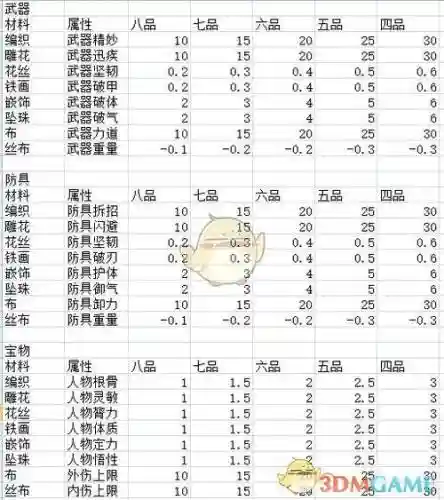 武器
材料 属性 八品 七品 六品 五品 四品
编织 武器精妙 10 15 20 25 30
雕花 武器迅疾 10 15 20 25 30
花丝 武器坚韧 0.2 0.3 0.4 0.5 0.6
铁画 武器破甲 0.2 0.3 0.4 0.5 0.6
嵌饰 武器破体 2 3 4 5 6
坠珠 武器破气 2 3 4 5 6
布 武器力道 10 15 20 25 30
丝布 武器重量 -0.1 -0.2 -0.2 -0.3 -0.3
防具
材料 属性 八品 七品 六品 五品 四品
编织 防具拆招 10 15 20 25 30
雕花 防具闪避 10 15 20 25 30
花丝 防具坚韧 0.2 0.3 0.4 0.5 0.6
铁画 防具破刃 0.2 0.3 0.4 0.5 0.6
嵌饰 防具护体 2 3 4 5 6
坠珠 防具御气 2 3 4 5 6
布 防具卸力 10 15 20 25 30
丝布 防具重量 -0.1 -0.2 -0.2 -0.3 -0.3
宝物
材料 属性 八品 七品 六品 五品 四品
编织 人物根骨 1 1.5 2 2.5 3
雕花 人物灵敏 1 1.5 2 2.5 3
花丝 人物膂力 1 1.5 2 2.5 3
铁画 人物体质 1 1.5 2 2.5 3
嵌饰 人物定力 1 1.5 2 2.5 3
坠珠 人物悟性 1 1.5 2 2.5 3
布 外伤上限 10 15 20 25 30
丝布 内伤上限 10 15 20 25 30
3DMGAME